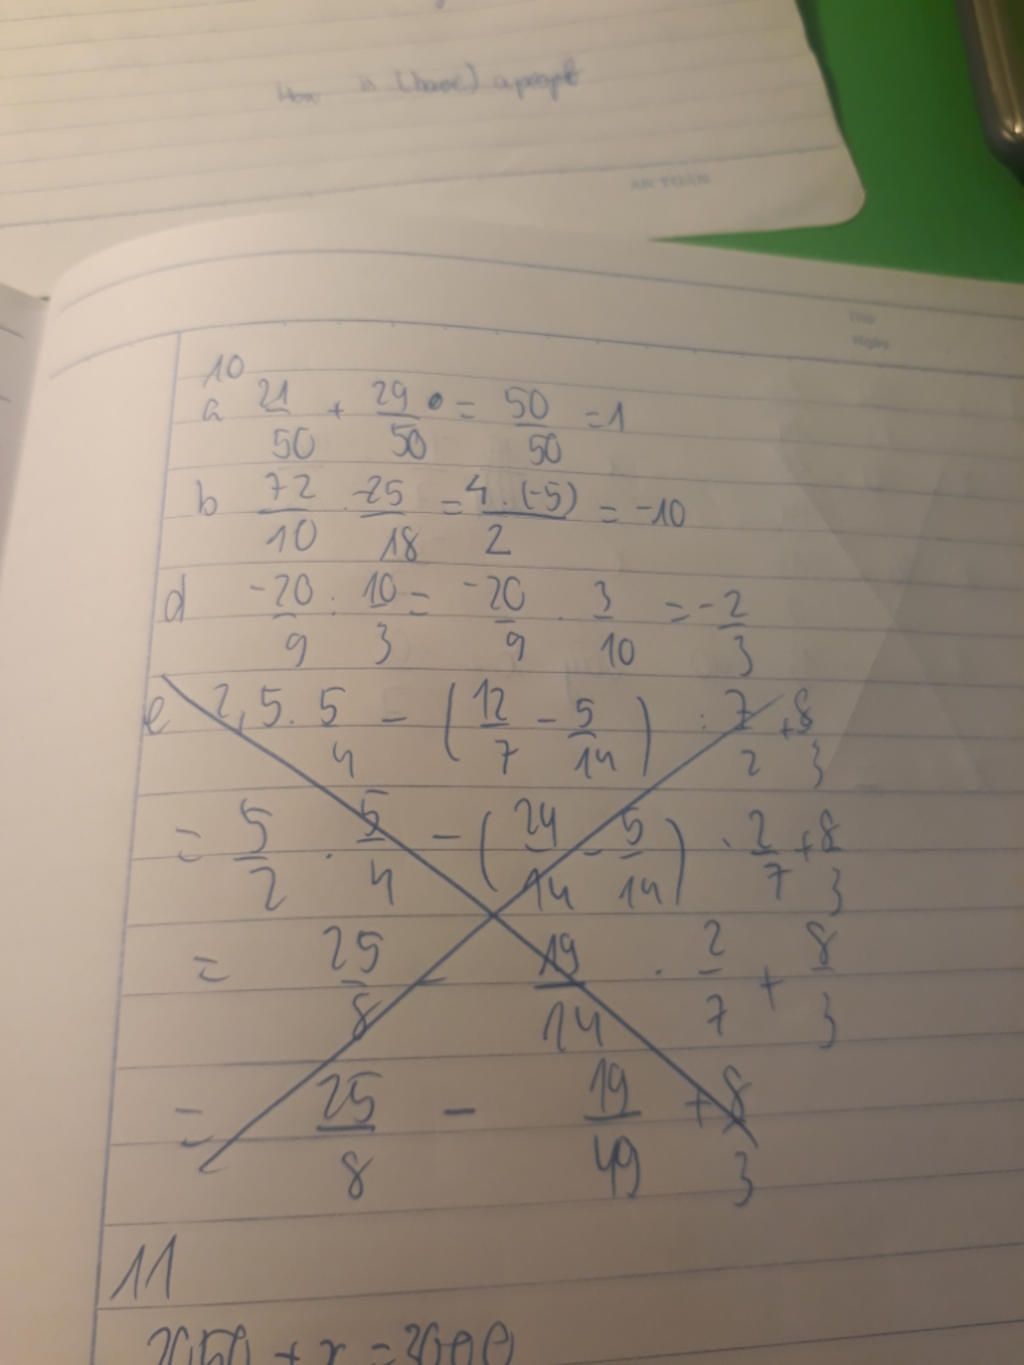 is (have) a people
AN TOÀN
Thứ
Ngày
10
a 21/50 + 29/50 = 50/50 = 1
b 72/10 . -25/18 = 4.(-5)/2 = -10
d -20/9 : 10/3 = -20/9 . 3/10 = -2/3
e 2,5. 5/4 - (12/7 - 5/14) : 7/2 + 8/3
= 5/2 . 5/4 - (24/14 - 5/14) . 2/7 + 8/3
= 25/8 - 19/14 . 2/7 + 8/3
= 25/8 - 19/49 + 8/3
11
2050 + x = 3000